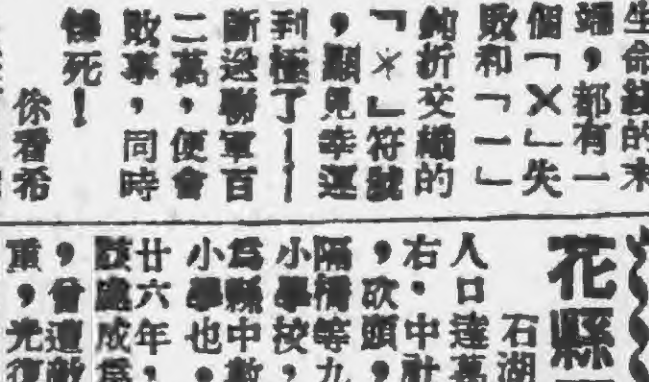 生命綫的末
端，都有一
個「X」失
敗和「一」
鈍折交織的
「×」符號
，顯見幸運
到極了——
斷送聯軍百
二萬，便會
敗事，同時
慘死！
你看希
花縣
石湖
人口達萬
右．中社
，欲頭，
隔等九
小學校，
為縣中數
小學也，
廿六年，
成為
，曾遭敵
重，光復